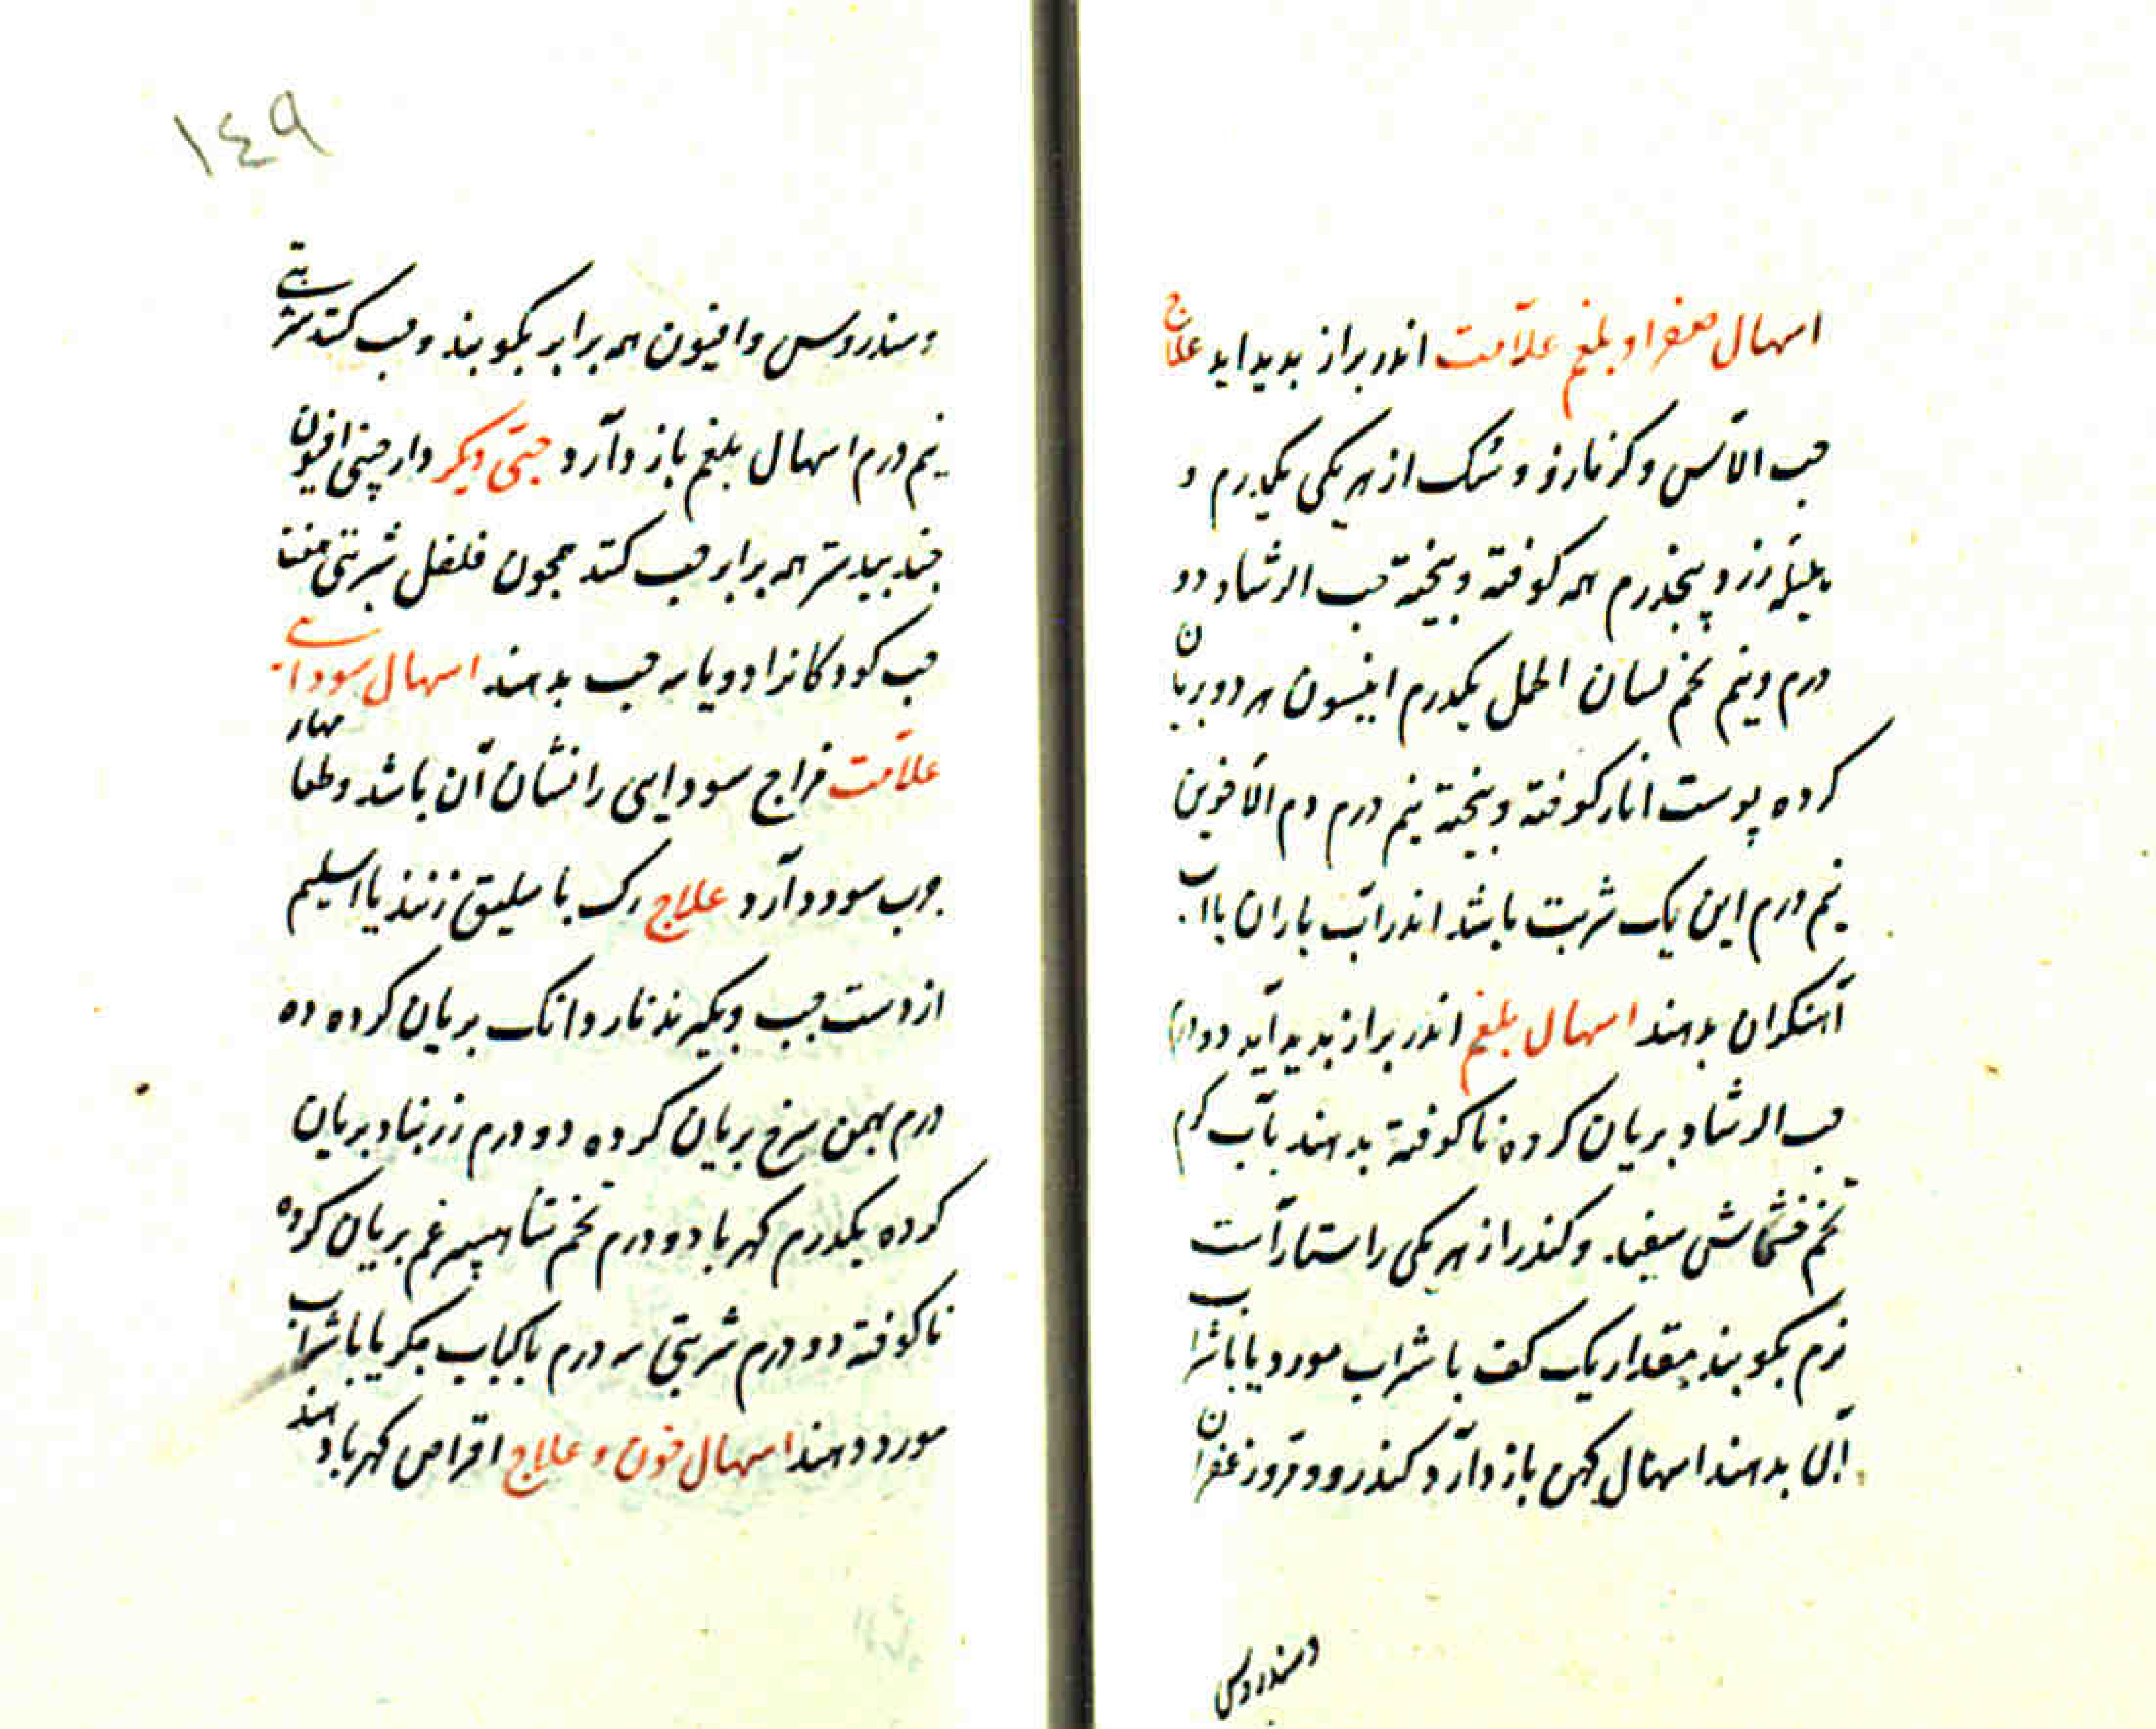 اسهال صفرا و بلغم علامت اندر براز بدید اید علاج
حب الآس و کزمازو و سُک از هر یکی یکدرم و
هلیله زرد پنجدرم همه کوفته و بیخته حب الرشاد دو
درم و نیم تخم لسان الحمل یکدرم انیسون هر دو بریان
کرده پوست انار کوفته و بیخته نیم درم دم الاخوین
نیم درم این یک شربت باشد اندر آب باران یا آب
آهنکران بدهند اسهال بلغم اندر براز بدید آید دوا
حب الرشاد بریان کرده ناکوفته بدهند بآب کرم
تخم خشخاش سفید و کندر از هر یکی راستا راست
نرم بکوبند مقدار یک کف با شراب مورد یا با شراب
آبی بدهند اسهال کهن باز دارد کندر و مر و زعفران
و سندروس
۱٤۹
و سندروس و افیون همه برابر بکوبند و حب کنند شربتی
نیم درم اسهال بلغم باز دآرد حبّی دیکر دارچینی افیون
جندبیدستر همه برابر حب کنند همچون فلفل شربتی هفت
حب کودکانرا دو یا سه حب بدهند اسهال سودایی
علامت مزاج سودایی را نشان آن باشد و طعامهاء
چرب سود دارد علاج رک باسلیق زنند یا اسلیم
از دست چپ و بکیرند ناردانک بریان کرده ده
درم بهمن سرخ بریان کرده دو درم زرنباد بریان
کرده یکدرم کهربا دو درم تخم شاهسپرغم بریان کرده
ناکوفته دو درم شربتی سه درم با کباب جکر یا با شراب
مورد دهند اسهال خون و علاج اقراص کهربا دهند